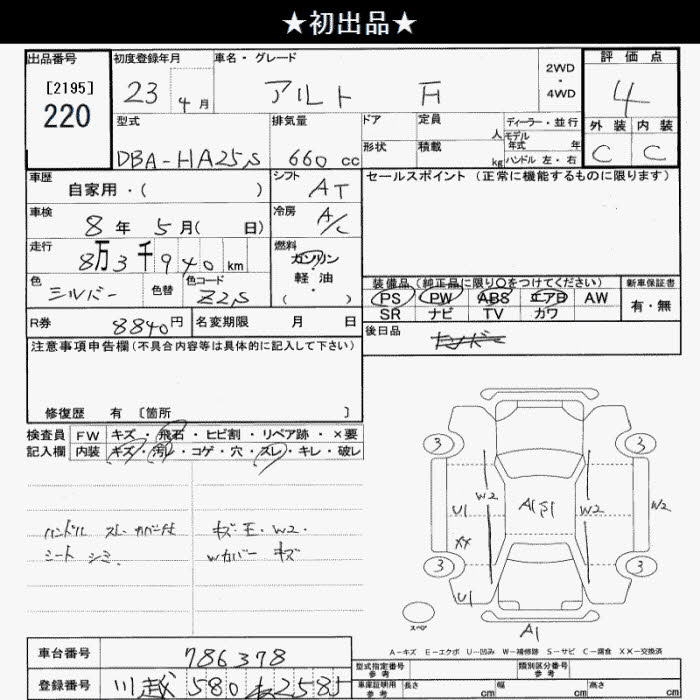 ★初出品★
出品番号
[2195]
220
初度登録年月
23 4月
車名・グレード
アルト F
2WD
・
4WD
評価点
4
外装 内装
C C
型式
DBA-HA25S
排気量
660 cc
ドア
形状
定員
人
積載
kg
ディーラー・並行
モデル
年式 年
ハンドル 左・右
車歴
自家用・( )
シフト
AT
セールスポイント (正常に機能するものに限ります)
車検
8年 5月( 日)
冷房
A/C
走行
8万3千940km
燃料
ガソリン
・
軽・油
( )
色
シルバー
色替
色コード
Z2S
R券
8840円
名変期限 月 日
装備品 (純正品に限り○をつけてください)
PS PW ABS エアB AW
SR ナビ TV カワ
新車保証書
有・無
後日品
注意事項申告欄(不具合内容等は具体的に記入して下さい)
修復歴 有 〔箇所 〕
検査員
記入欄
FW キズ・飛石・ヒビ割・リペア跡・×要
内装 キズ・汚レ・コゲ・穴・スレ・キレ・破レ
ハンドル スレ カバー付
シート シミ
キズ・E・W2・
Wカバー キズ
3 3
W2
U1 A1S1 W2 W2
XX
3 3
U1
スペア
A1
A-キズ E-エクボ U-凹み W-補修跡 S-サビ C-腐食 XX-交換済
車台番号
786378
登録番号
川越 580 2585
型式指定番号
参考
類別区分番号
参考
車庫証明用
参考
長さ cm 幅 cm 高さ cm